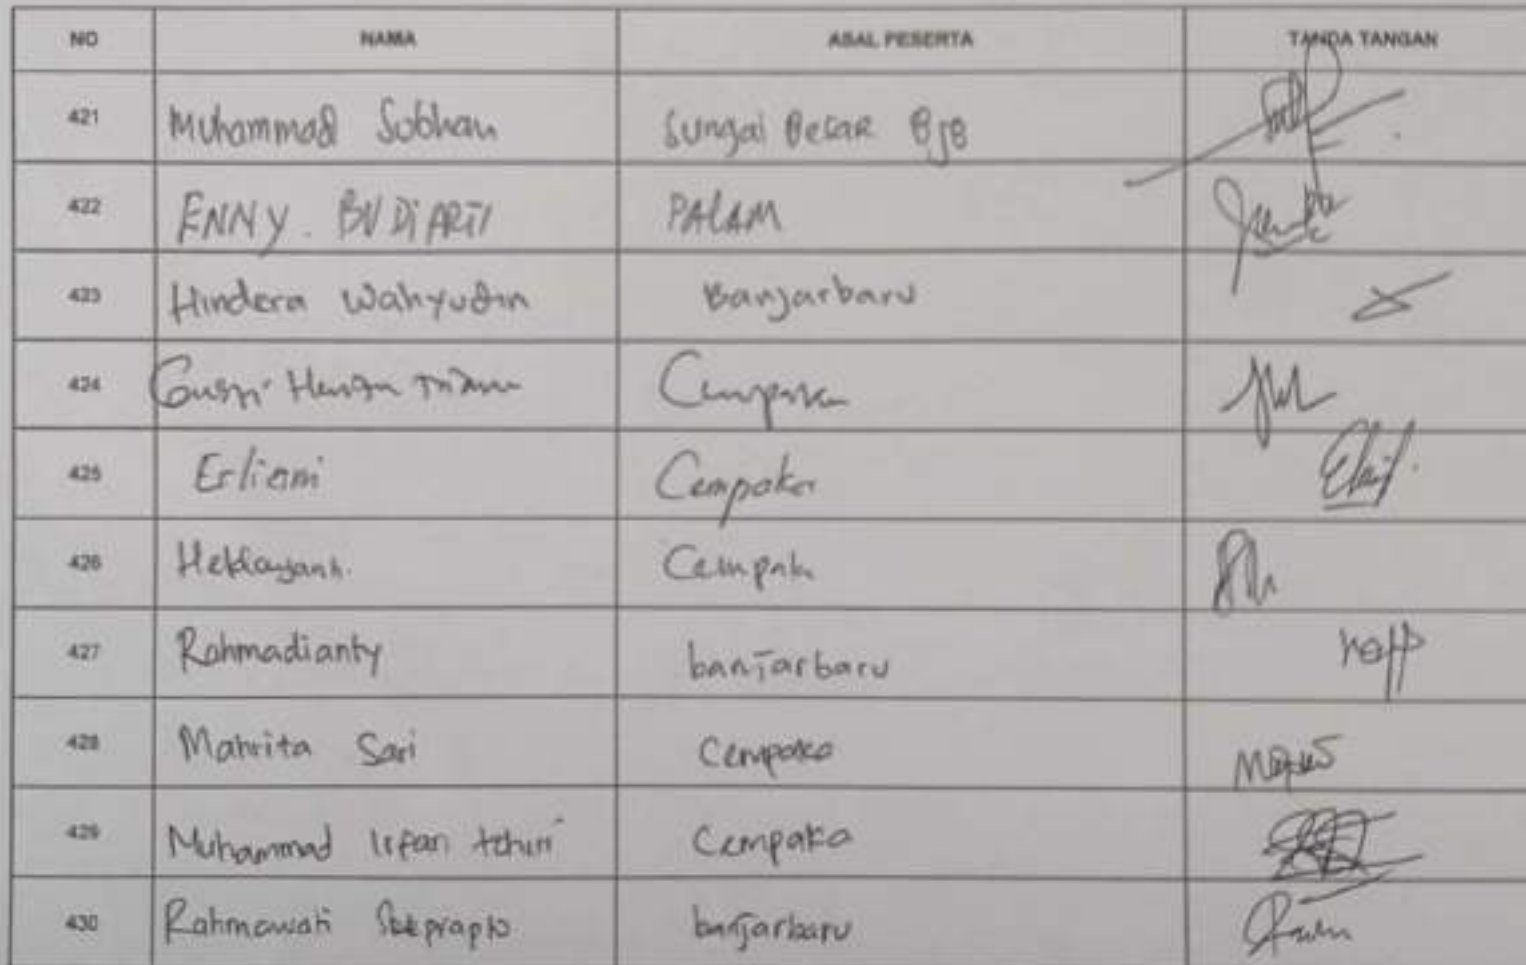 NO NAMA ASAL PESERTA TANDA TANGAN
421 Muhammad Sobhan Sungai Besar BJB
422 ENNY. BUDIARTI PALAM
423 Hindera Wahyudin Banjarbaru
424 Gusti Cempaka
425 Erliani Cempaka
426 Cempaka
427 Rahmadianty banjarbaru
428 Mahrita Sari Cempaka
429 Muhammad Irfan Cempaka
430 Rahmawati banjarbaru